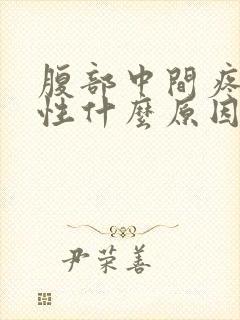 腹部中間疼
性什麼原因
尹荣善